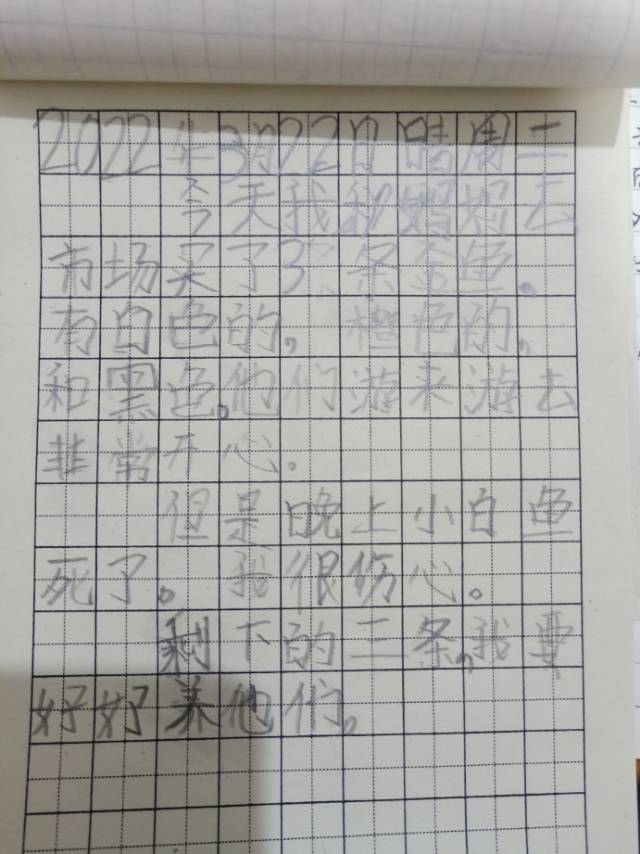 2022年3月22日晴周二
今天我和妈妈去
市场买了3条金鱼。
有白色的，橙色的，
和黑色。他们游来游去
非常开心。
但是晚上小白鱼
死了。我很伤心。
剩下的二条，我要
好好养他们。